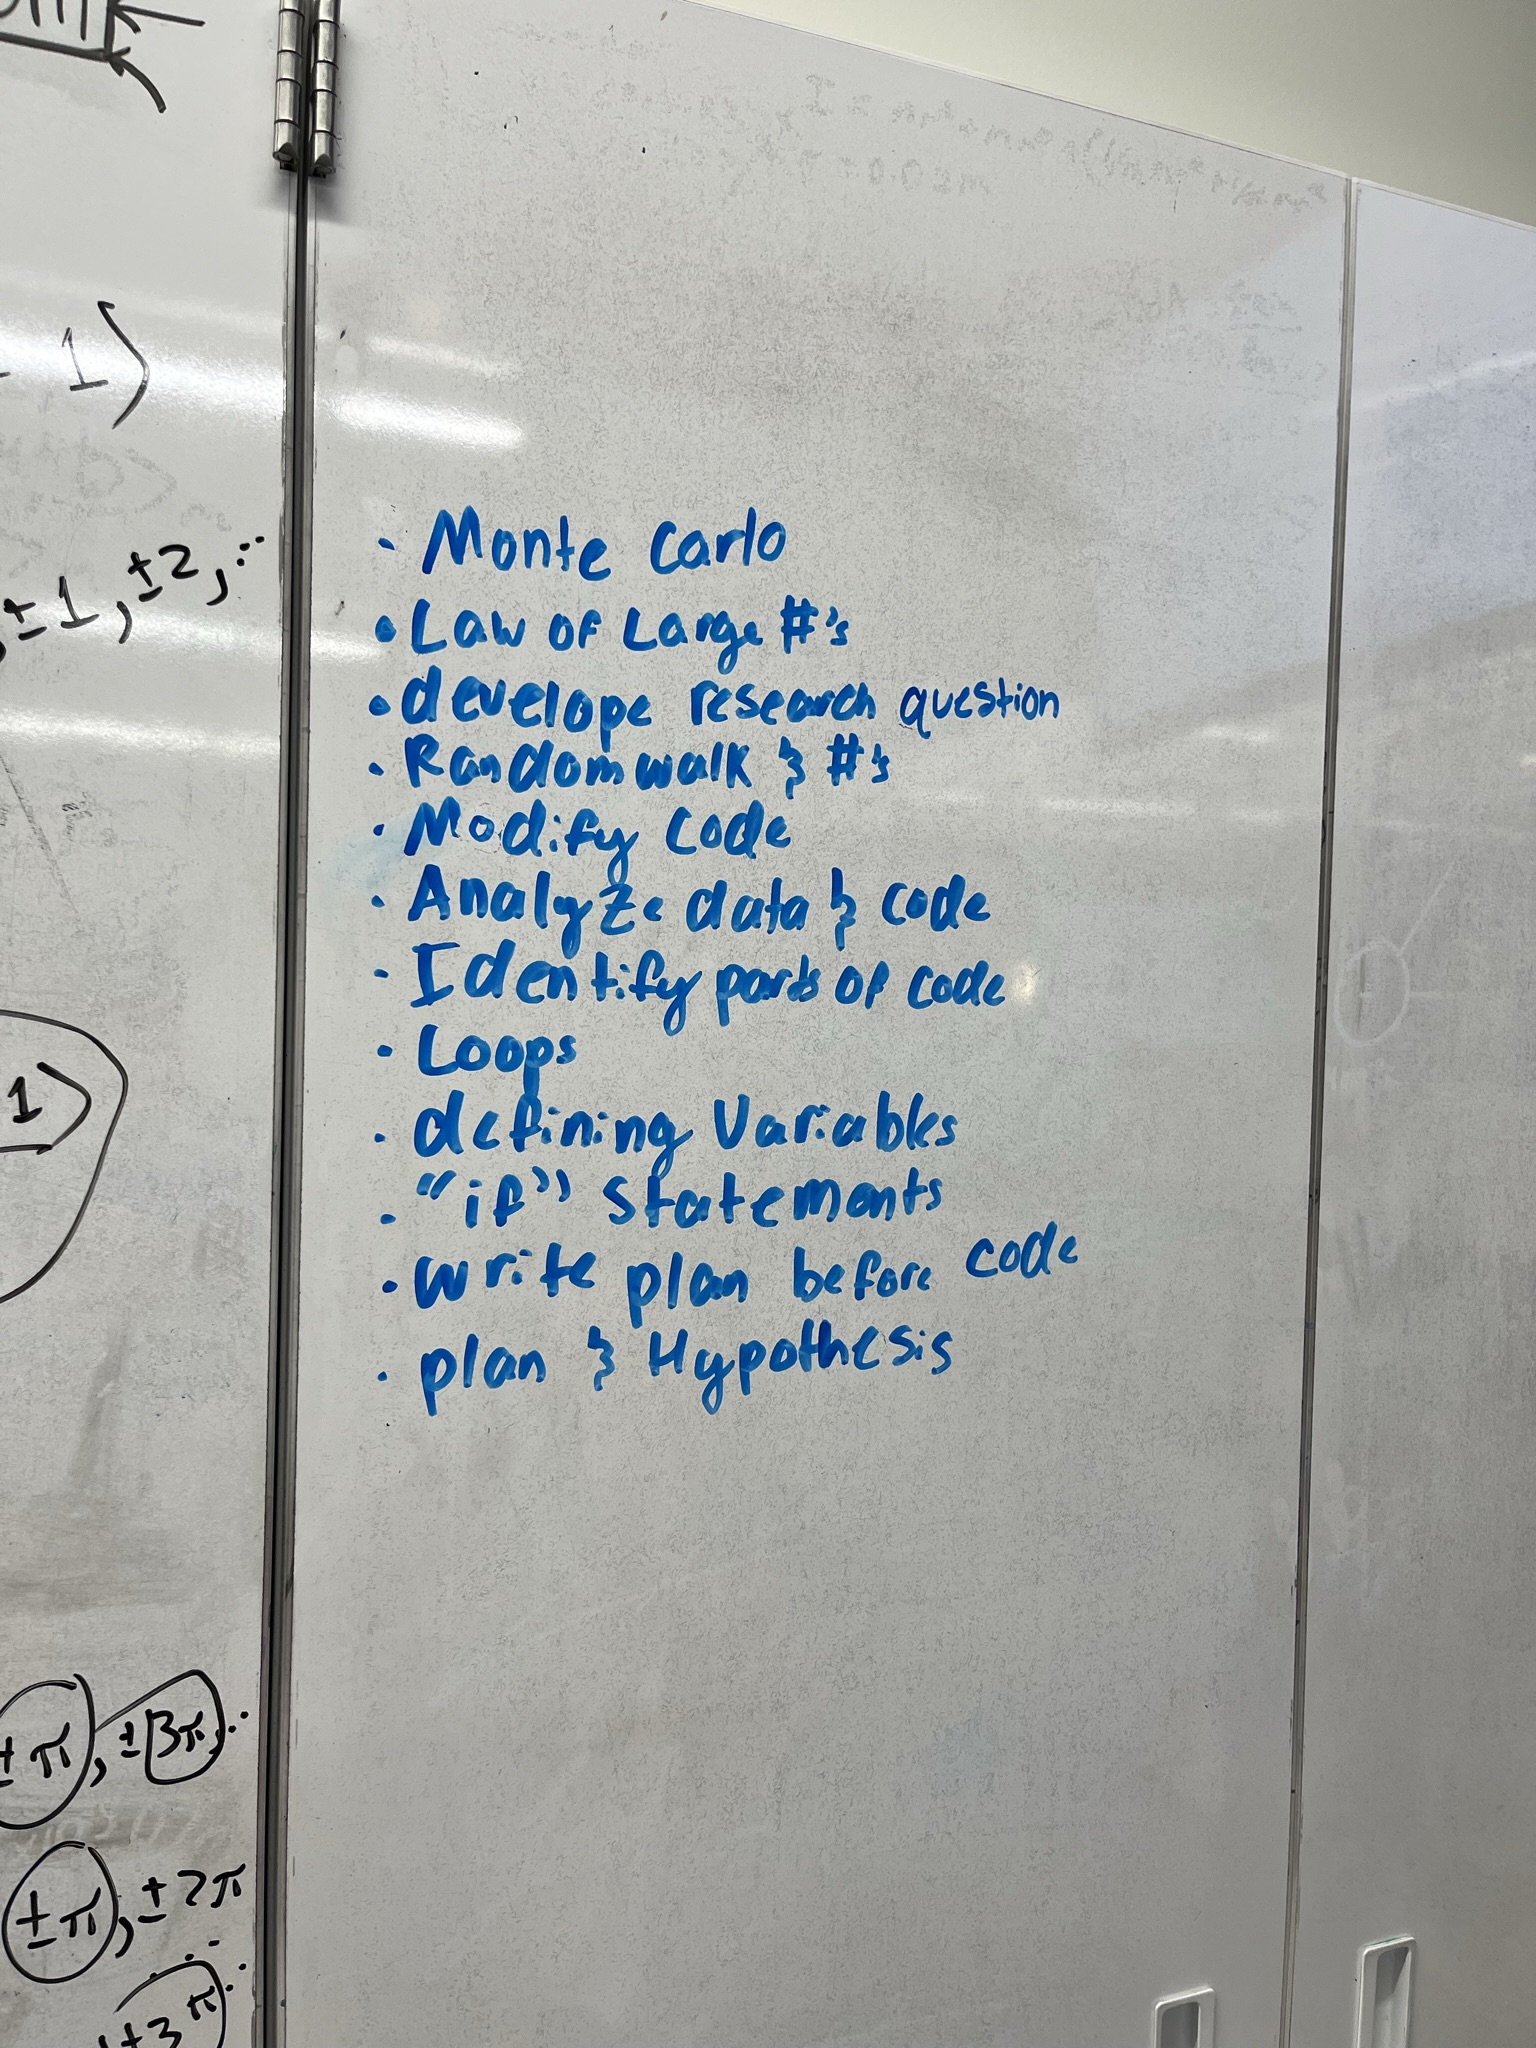 • Monte Carlo
• Law of Large #'s
• develope research question
• Random walk & #'s
• Modify Code
• Analyze data & code
• Identify parts of code
• Loops
• defining Variables
• "if" statements
• write plan before code
• plan & Hypothesis
1)
±1, ±2, ...
1)
±π, ±3π, ...
±π, ±2π